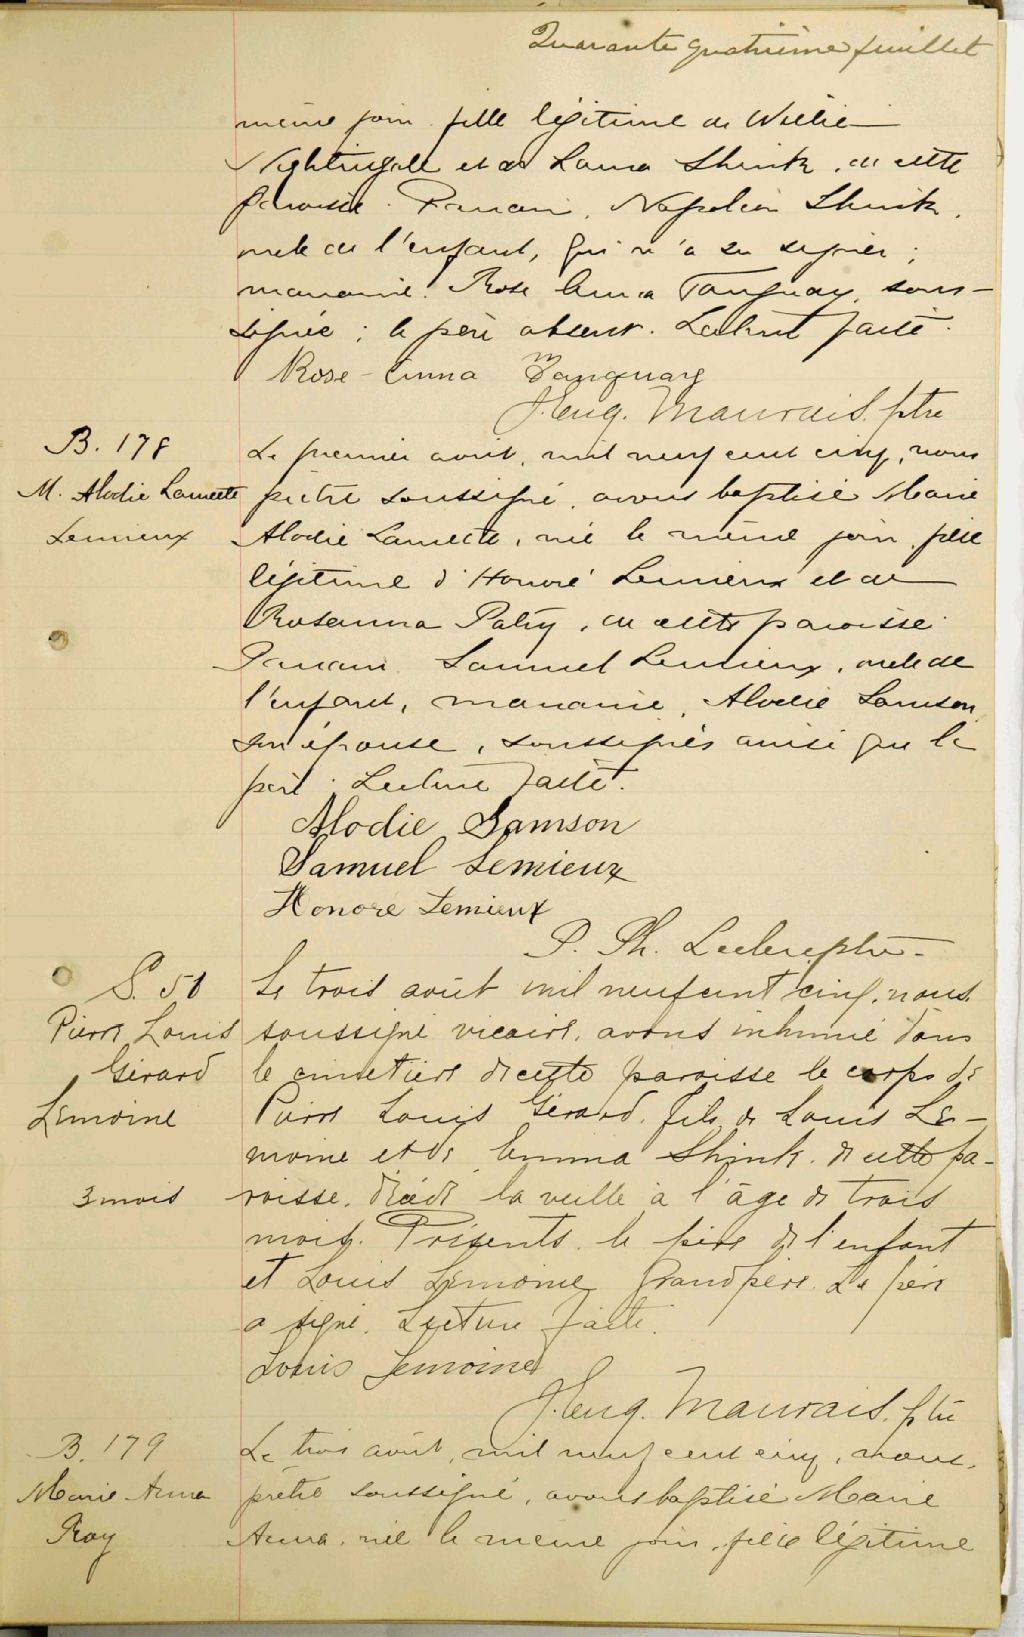 Quarante quatrième feuillet
même jour fille légitime de Willie
Nightingale et de Laura Shink, de cette
paroisse. Parrain, Napoléon Shink,
oncle de l'enfant, qui n'a su signer;
marraine. Rose Anna Tanguay, sous-
signée; le père absent. Lecture faite.
Rose-Anna Tanguay
J. Eug. Mauvais. ptre
B. 178
M. Alodie Laurette
Lemieux
Le premier août, mil neuf cent cinq, nous
prêtre soussigné, avons baptisé Marie
Alodie Laurette, née le même jour, fille
légitime d'Honoré Lemieux et de
Rosanna Patry, de cette paroisse.
Parrain Samuel Lemieux, oncle de
l'enfant, marraine, Alodie Samson
son épouse, soussignés ainsi que le
père. Lecture faite.
Alodie Samson
Samuel Lemieux
Honoré Lemieux
P. Ph. Leclerc ptre
S. 50
Pierre Louis
Gérard
Lemoine
3 mois
Le trois août mil neuf cent cinq, nous
soussigné vicaire, avons inhumé dans
le cimetière de cette paroisse le corps de
Pierre Louis Gérard, fils de Louis Le-
moine et de Emma Shink. de cette pa-
roisse, décédé la veille à l'âge de trois
mois. Présents. le père de l'enfant
et Louis Lemoine Grand père. Le père
a signé. Lecture faite.
Louis Lemoine
J. Eug. Mauvais. ptre
B. 179
Marie-Anna
Roy
Le trois août, mil neuf cent cinq, nous,
prêtre soussigné, avons baptisé Marie
Anna. née le même jour, fille légitime